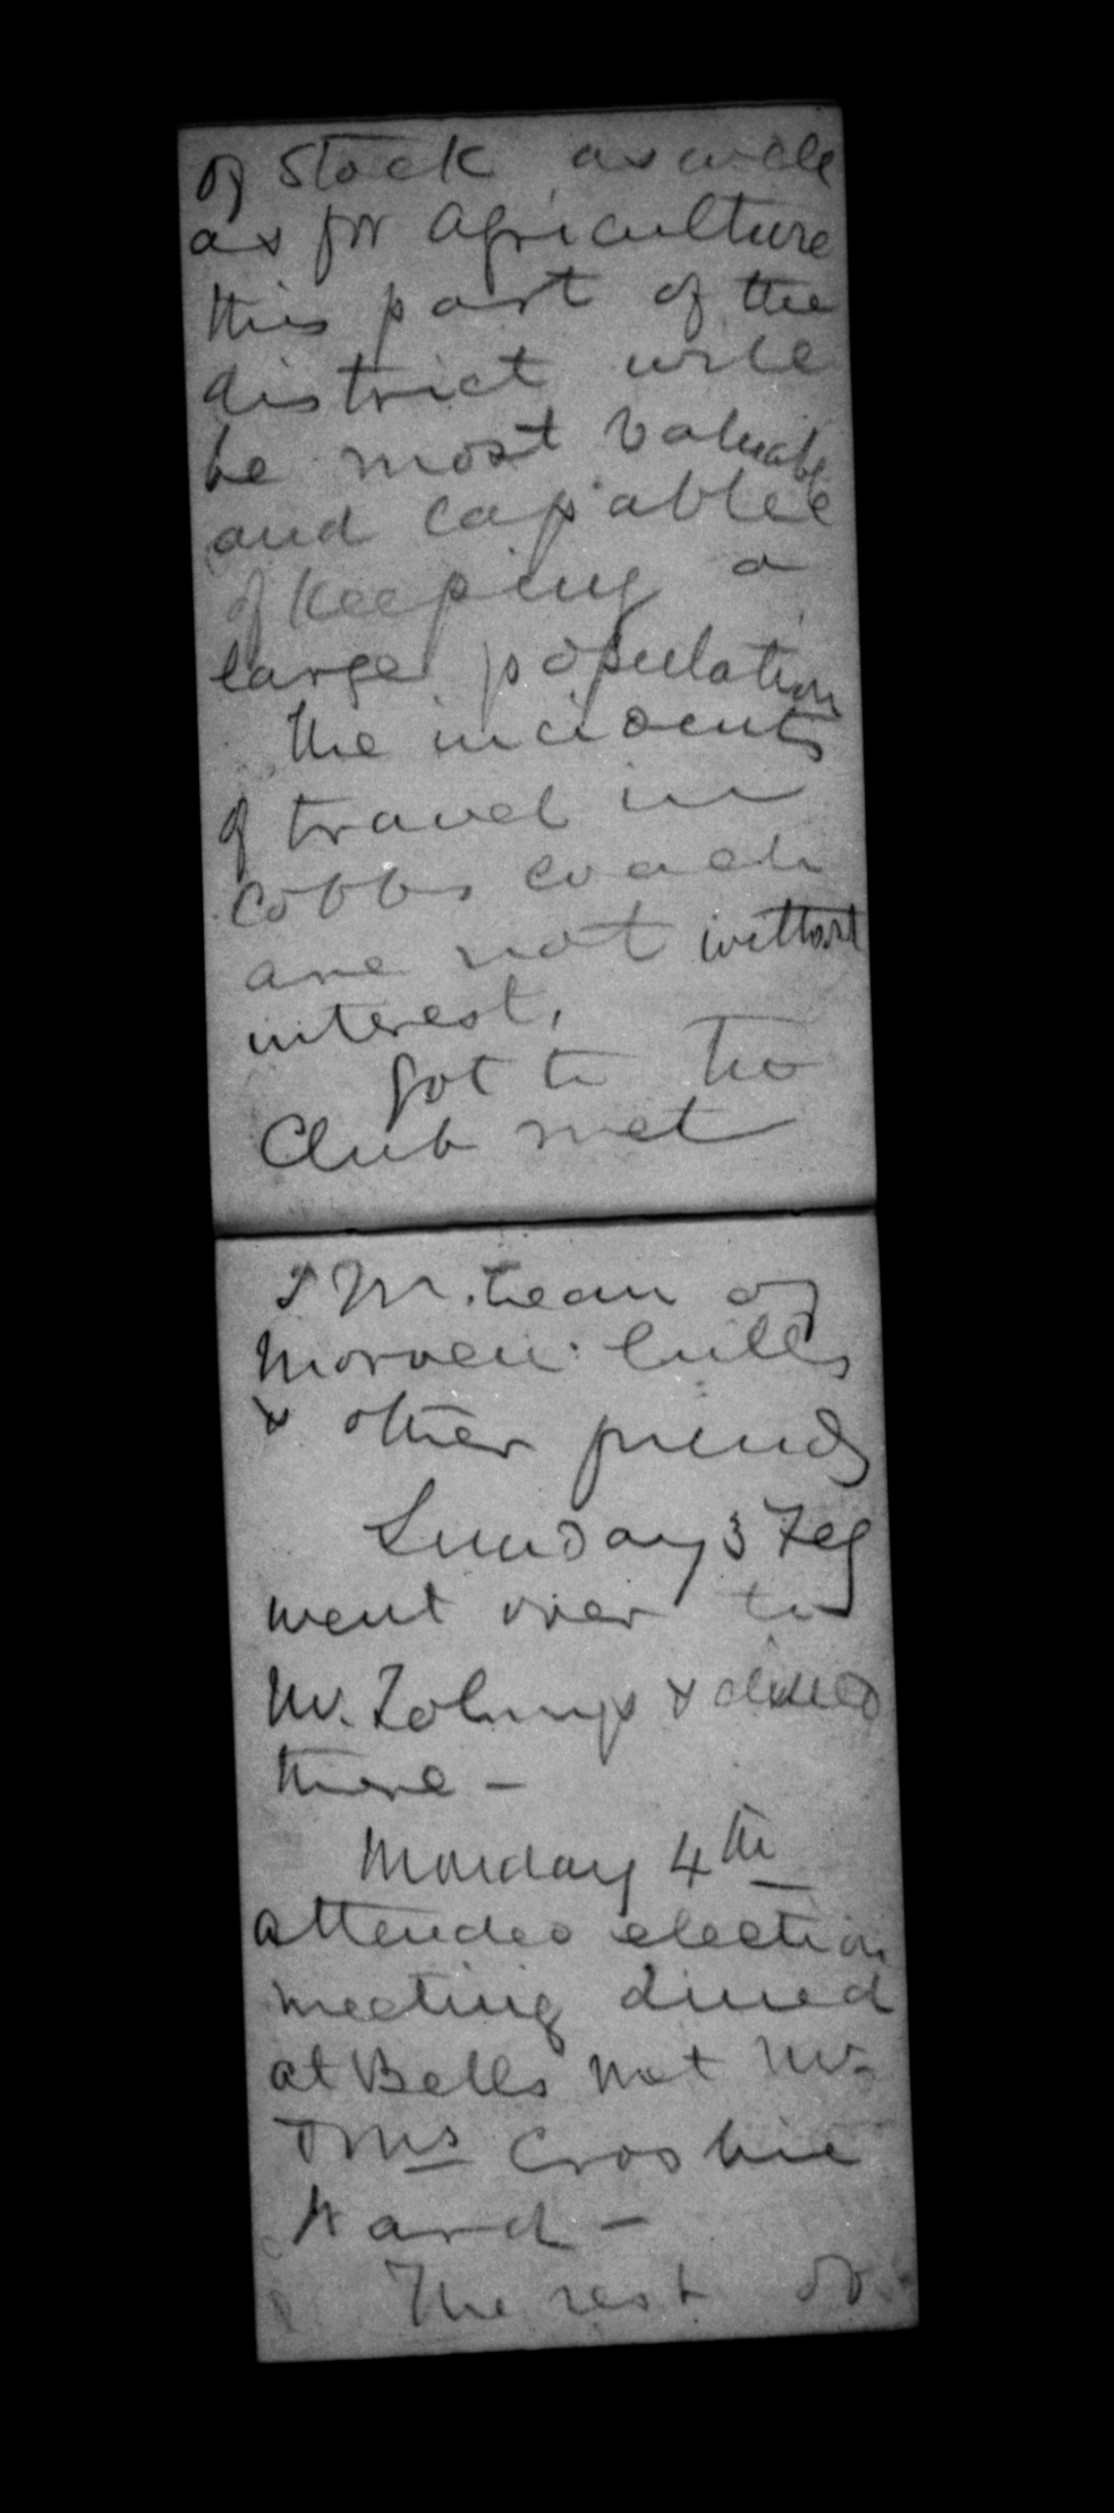 of Stock as well
as for agriculture
this part of the
district will
be most valuable
and capable
of keeping a
large population
The incidents
of travel in
Cobbs coach
are not without
interest,
Got to the
Club met
McLean of
Morven hills
& other friends
Sunday 3 Feb
went over to
Mr. & dined
there —
Monday 4th
attended election
meeting dined
at Bells met Mr.
& Mrs Crosbie
Ward —
The rest of